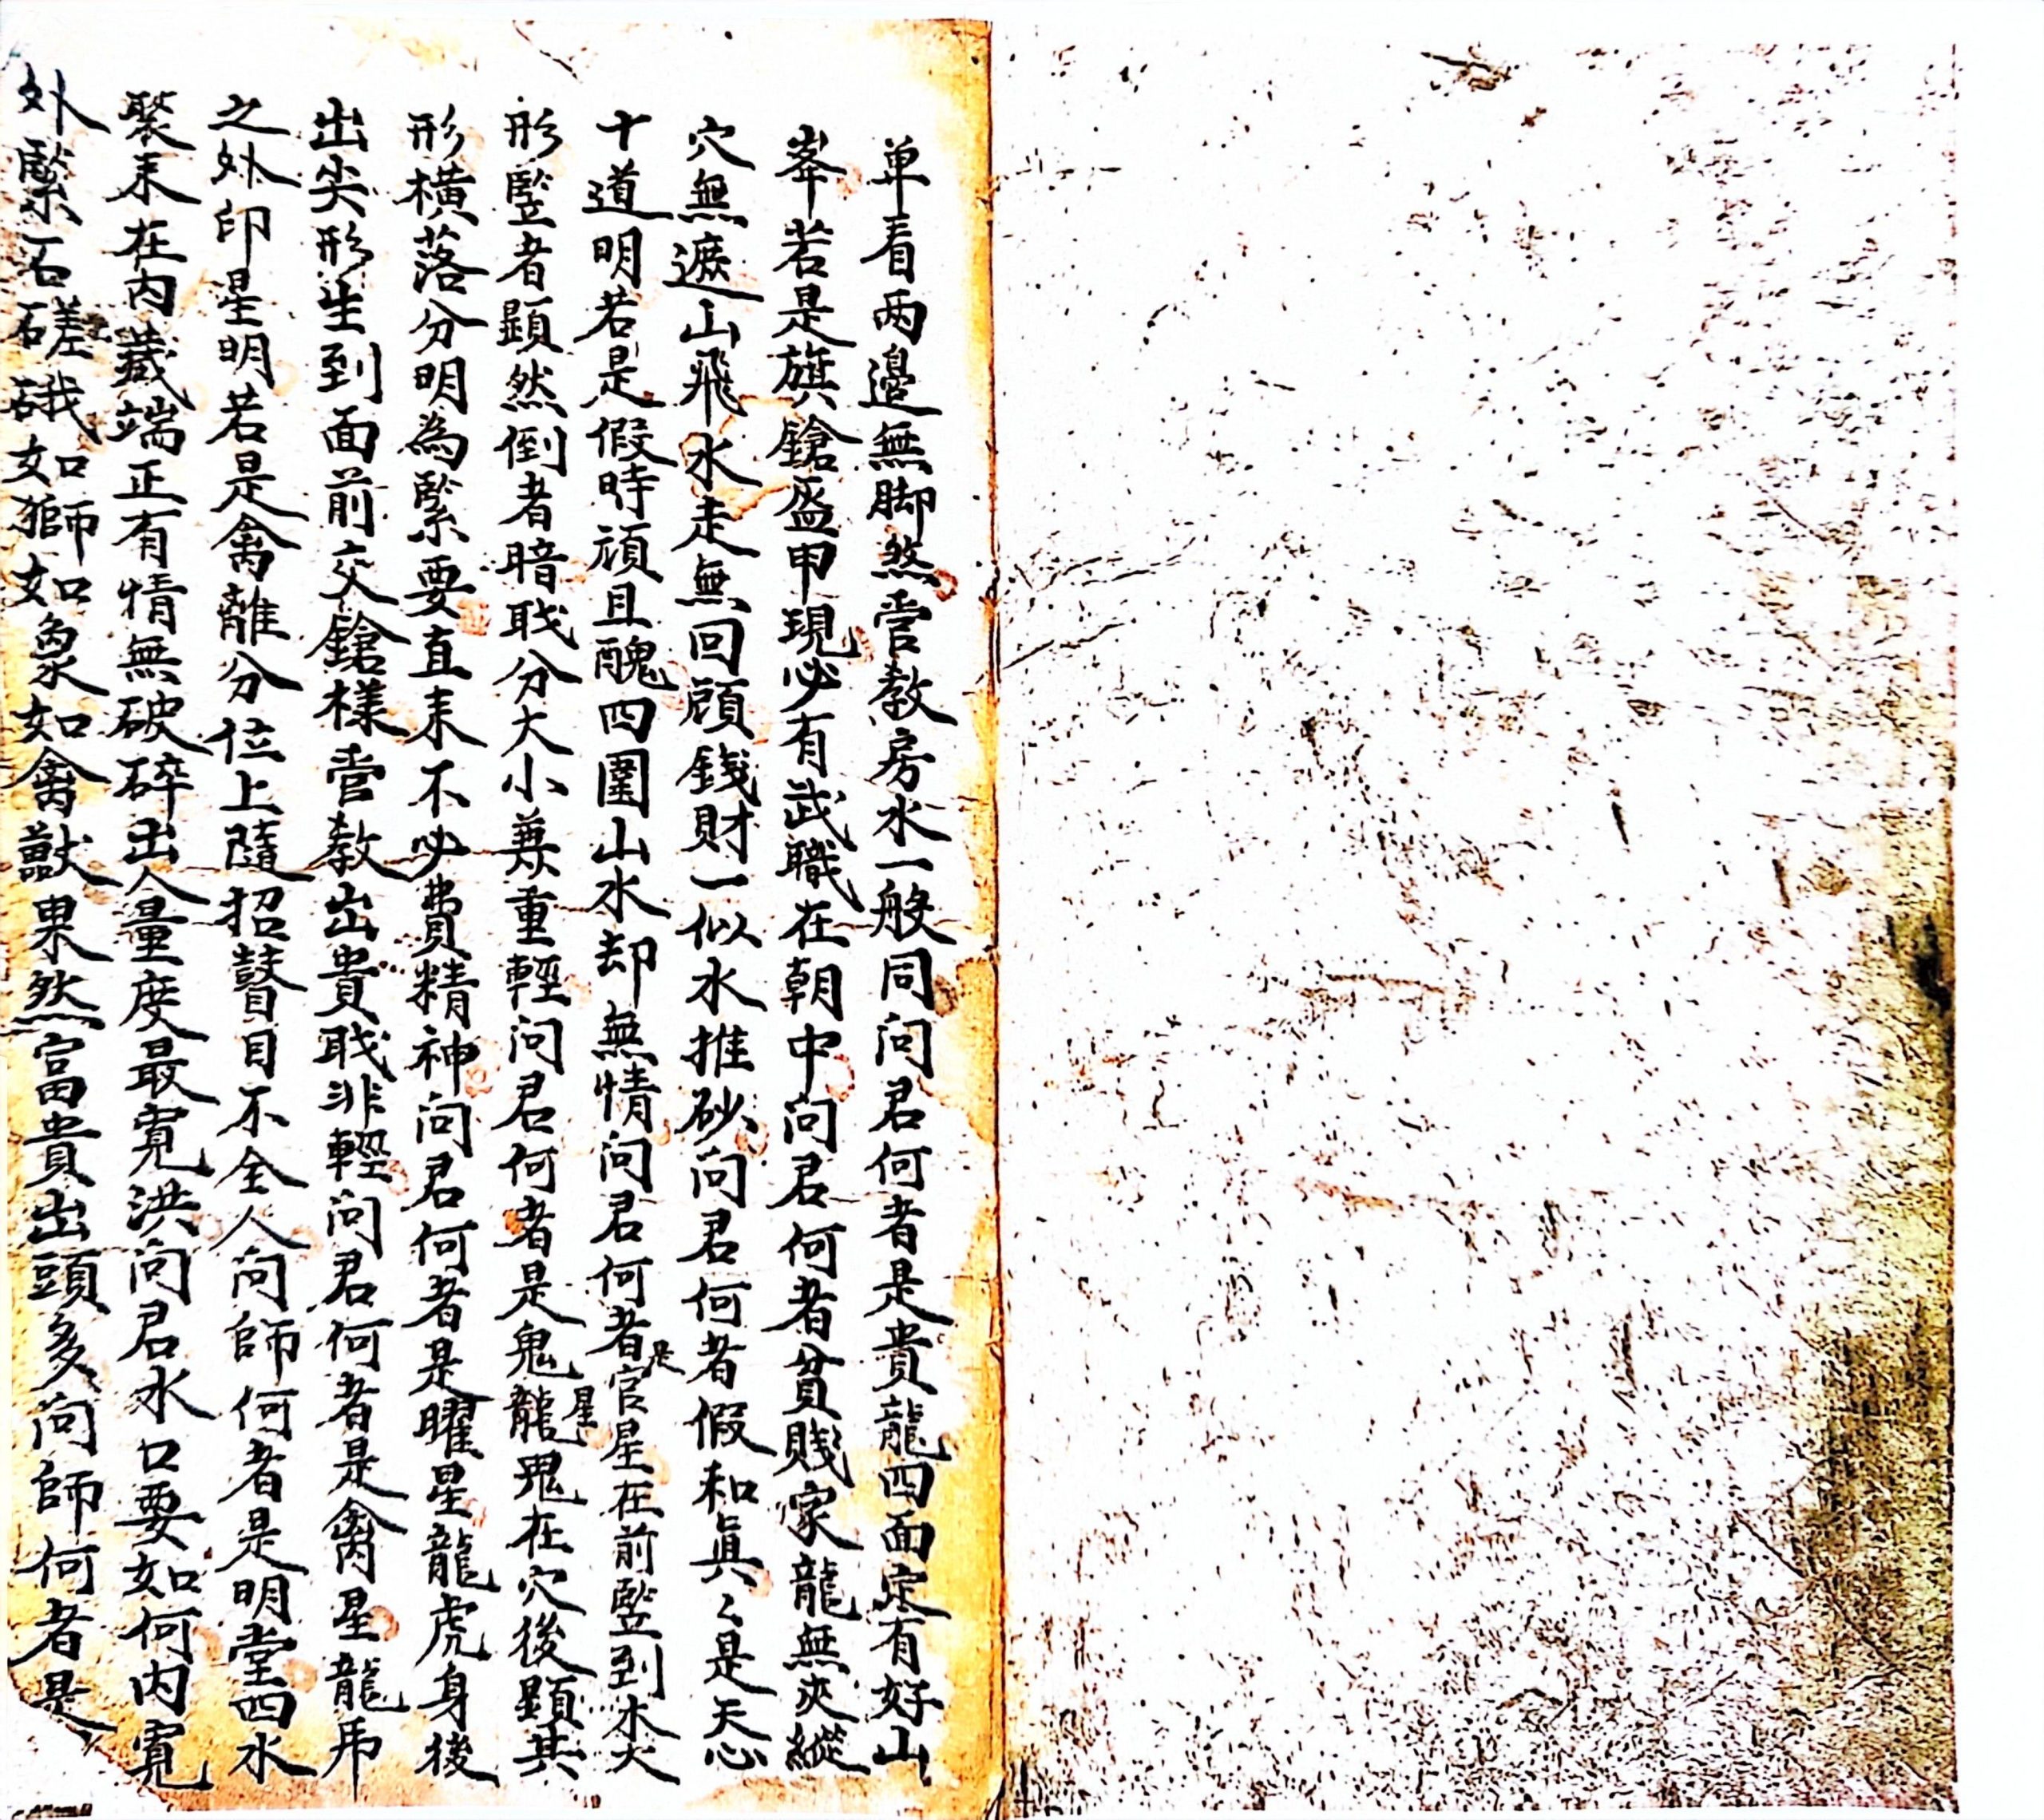 单看两邉無脚煞管教房水一般同问君何者是贵龍四面定有好山
峯若是旗鎗盔甲現必有武職在朝中问君何者貧賤家龍無夾縱
穴無遮山飛水走無回顾錢財一似水推砂问君何者假和真〻是天心
十道明若是假時頑且醜四圍山水却無情问君何者是官星在前竪到木火
形竪者顕然倒者暗聀分大小兼重輕问君何者是鬼星龍鬼在穴後顕其
形横落分明為緊要直来不必費精神问君何者是曜星龍虎身後
出尖形生到面前交鎗樣管教出貴聀非輕问君何者是禽星龍帍
之外印星明若是禽離分位上隨招瞽目不全人问師何者是明堂四水
聚来在内藏端正有情無破碎出人量度最寛洪问君水口要如何内寛
外緊石磋硪如獅如象如禽獸果然富貴出頭多问師何者是